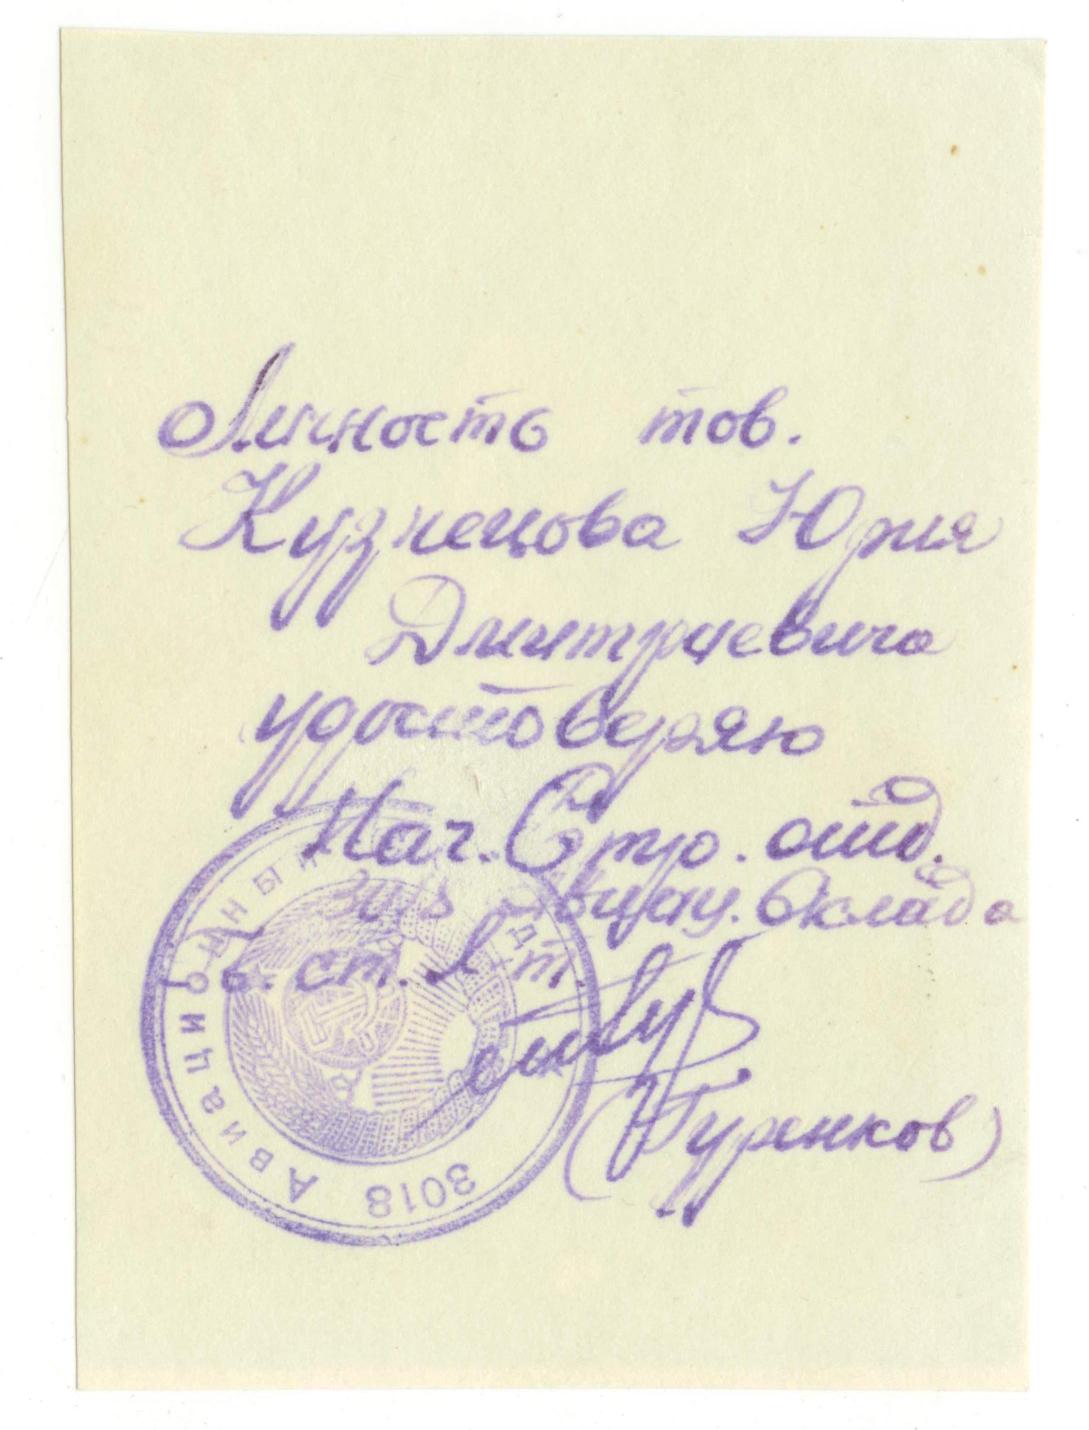 Личность тов.
Кузнецова Юрия
Дмитриевича
удостоверяю
Нач. Стр. отд.
3018 Авиац. Склада
ст. л-т.
(Гуренков)
3018 Авиационный